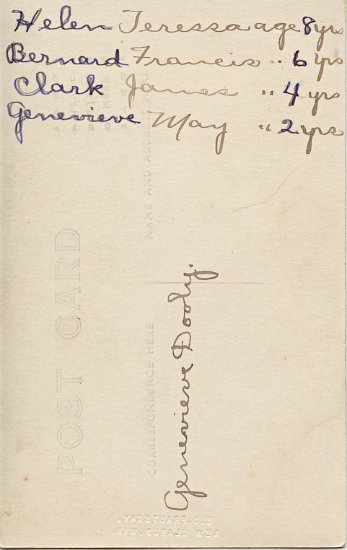 Helen Teressa age 8 yrs
Bernard Francis " 6 yrs
Clark James " 4 yrs
Genevieve May " 2 yrs
NAME AND ADDRESS HERE
POST CARD
CORRESPONDENCE HERE
Genevieve Dooly.
NEW GLARUS, WIS.